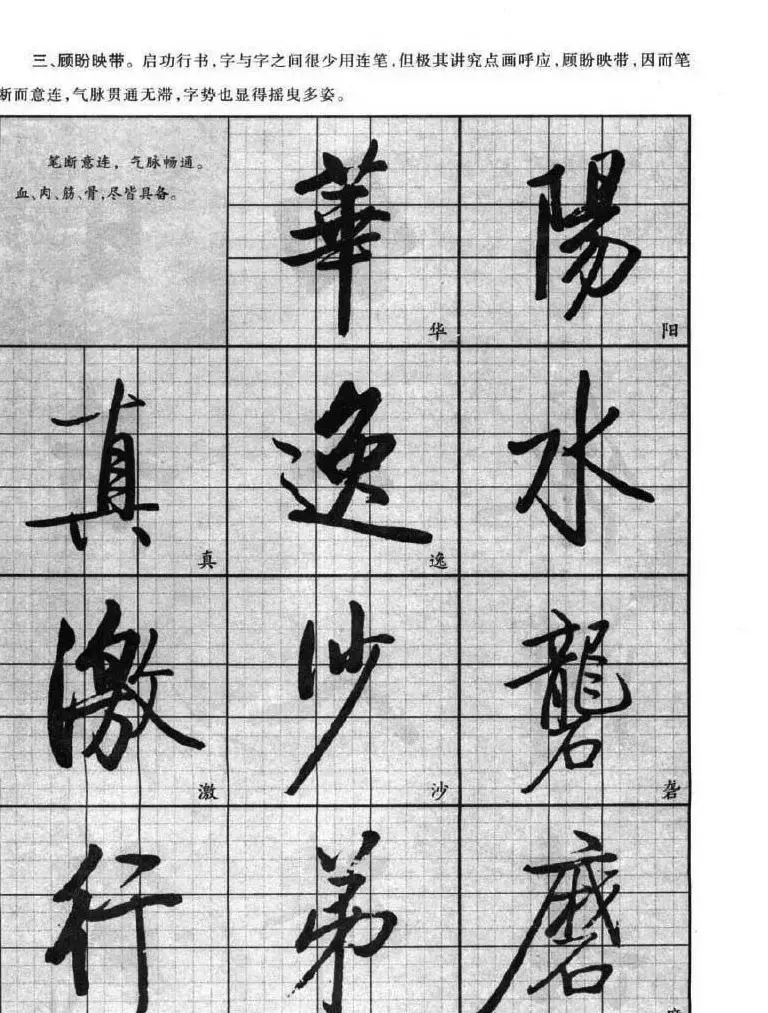 三、顾盼映带。启功行书,字与字之间很少用连笔,但极其讲究点画呼应,顾盼映带,因而笔
断而意连,气脉贯通无滞,字势也显得摇曳多姿。
笔断意连,气脉畅通。
血、肉、筋、骨,尽皆具备。
陽
阳
華
华
水
逸
逸
真
真
礱
砻
沙
沙
激
激
磨
弟
行